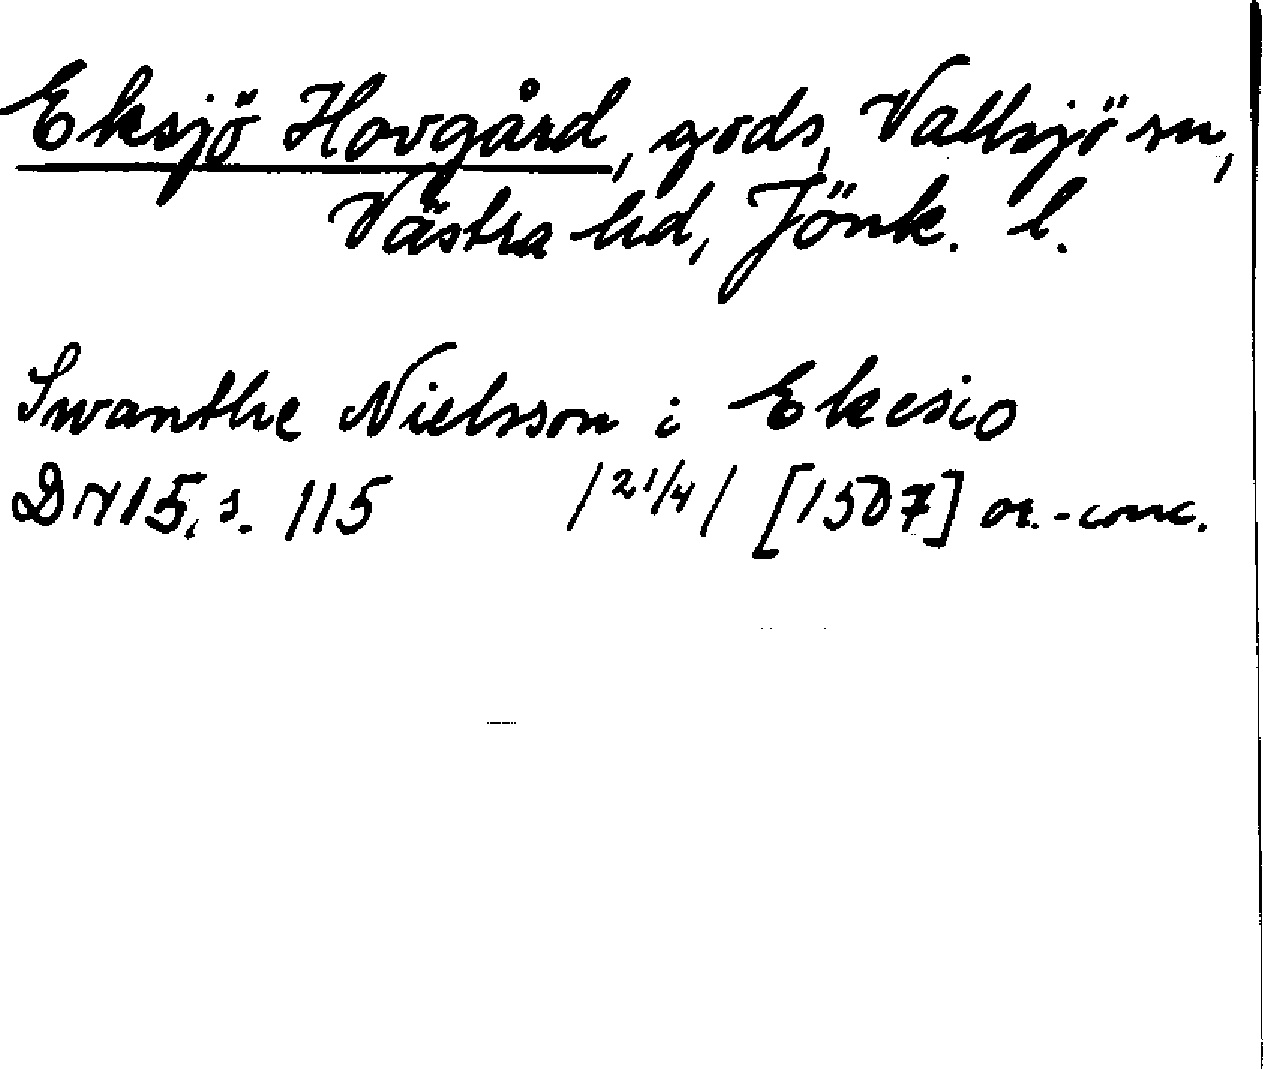 Eksjö Hovgård, gods, Vallsjö sn,
Västra hd, Jönk. l.
Swanthe Nielsson i Ekesio
DN 15, s. 115 /21/4/ [1507] or.-conc.